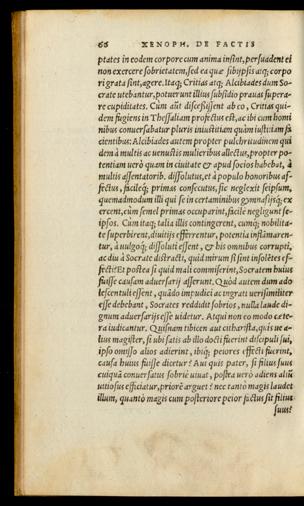 66 XENOPH. DE FACTIS
ptates in eodem corpore cum anima insint, persuadent ei
non exercere sobrietatem, sed ea quæ sibiipsis atq; corpo
ri grata sint, agere. Itaq; Critias atq; Alcibiades dum So-
crate utebantur, potuerunt illius subsidio prauas supera-
re cupiditates. Cum aũt discessissent ab eo, Critias qui-
dem fugiens in Thessaliam profectus est, ac ibi cum homi
nibus conuersabatur pluris iniustitiam quàm iustitiam fa
cientibus: Alcibiades autem propter pulchritudinem qui
dem à multis ac uenustis mulieribus allectus, propter po-
tentiam uerò quam in ciuitate & apud socios habebat, à
multis assentatorib. dissolutus, et à populo honoribus af-
fectus, facileq; primas consecutus, sic neglexit seipsum,
quemadmodum illi qui se in certaminibus gymnasijsq; ex
ercent, cùm semel primas occuparint, facilè negligunt se-
ipsos. Cùm itaq; talia illis contingerent, cumq; nobilita-
te superbirent, diuitijs efferrentur, potentia inflamaren-
tur, à uulgoq; dissoluti essent, & his omnibus corrupti,
ac diu à Socrate distracti, quid mirum si sint insolẽtes ef-
fecti? Et postea si quid mali commiserint, Socratem huius
fuisse causam aduersarij asserunt. Quòd autem dum ado
lescentuli essent, quãdo impudici ac ingrati uerisimiliter
esse debebant, Socrates reddidit sobrios, nulla laude di-
gnum aduersarijs esse uidetur. Atqui non eo modo cæte-
ra iudicantur. Quisnam tibicen aut citharista, quis ue a-
lius magister, si ubi satis ab illo docti fuerint discipuli sui,
ipso omisso alios adierint, ibiq; peiores effecti fuerint,
causa huius fuisse dicetur? Aut quis pater, si filius suus
cuiquã conuersatus sobriè uiuat, postea uerò adiens aliũ
uitiosus efficiatur, priorẽ arguet? nec tantò magis laudet
illum, quantò magis cum posteriore peior factus sit filius
suus?